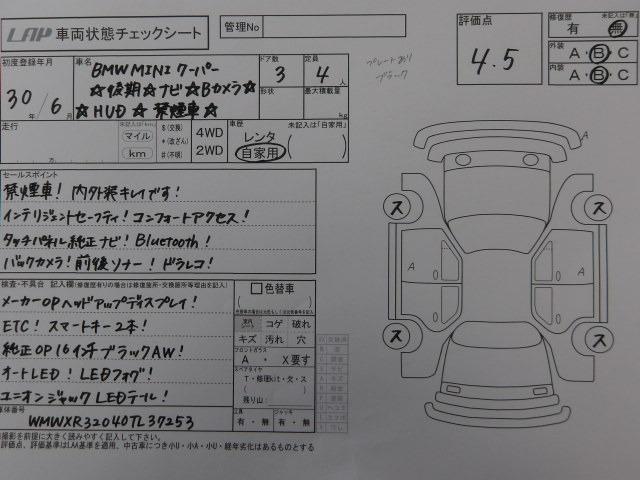 LAP 車両状態チェックシート
管理No
評価点
4.5
修復歴 未記入は「無」
有・無
外装 A・B・C
内装 A・B・C
初度登録年月
30年/6月
車名
BMW MINI クーパー
☆後期☆ナビ☆Bカメラ☆
☆HUD☆禁煙車☆
ドア数
3
定員
4人
形状
最大積載量
kg
プレートあり
ブラック
走行
万
マイル
km
$(交換)
*(改ざん)
#(不明)
4WD
2WD
車歴 未記入は「自家用」
レンタ
自家用
セールスポイント
禁煙車！内外装キレイです！
インテリジェントセーフティ！コンフォートアクセス！
タッチパネル純正ナビ！Bluetooth！
バックカメラ！前後ソナー！ドラレコ！
検査・不具合 記入欄(修復歴有りの場合は修復箇所・交換箇所等理由を記入)
メーカーOPヘッドアップディスプレイ！
ETC！スマートキー2本！
純正OP16インチブラックAW！
オートLED！LEDフォグ！
ユニオンジャックLEDテール！
色替車
コゲ 破れ
キズ 汚れ 穴
フロントガラス
A ・ X要す
スペアタイヤ
T・修理kit・欠・ス
残り山：
工具
有・無
ジャッキ
有・無
車体番号
WMWXR32040TL37253
撮影を前提に大きく読みやすく記入して下さい。
評価点、評価基準はLAA基準を適用、中古車につき小U・小A・小U・経年劣化はあるものとする
A
ス
ス
A
A
ス
ス